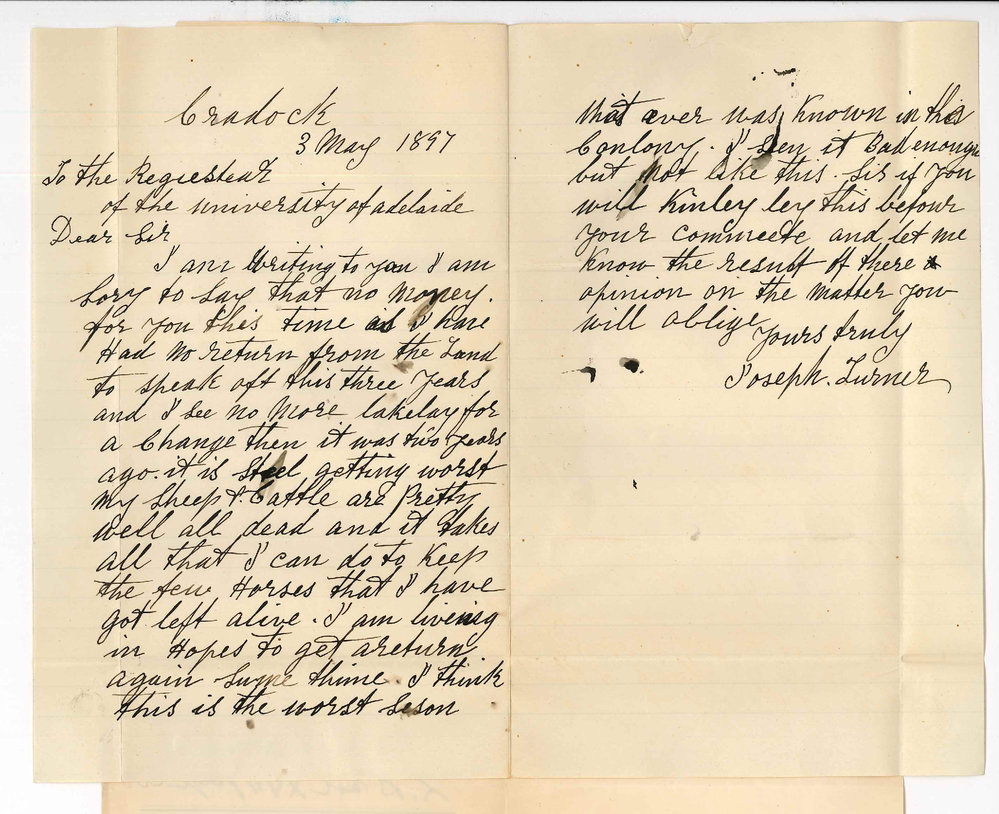 Cradock
3 May 1897
To the Regiestear
of the university of adelaide
Dear Sir
I am Writing to you I am
Sory to Say that no Money.
for you this time as I have
Had no return from the Land
to speak oft this three years
and I see no More lakelay for
a Change then it was two years
ago. it is Steel getting worst
My Sheep & Cattle are Pretty
well all dead and it takes
all that I can do to Keep
the few Horses that I have
got left alive. I am liveing
in Hopes to get a return
again Sume thime. I think
this is the worst Seson
that ever was Known in this
Conlony. I Sen it Bad enough
but not like this. Sir if you
will Kinley ley this befour
your commeete and let me
Know the result of there
opinion on the matter you
will oblige
yours truly
Joseph. Turner